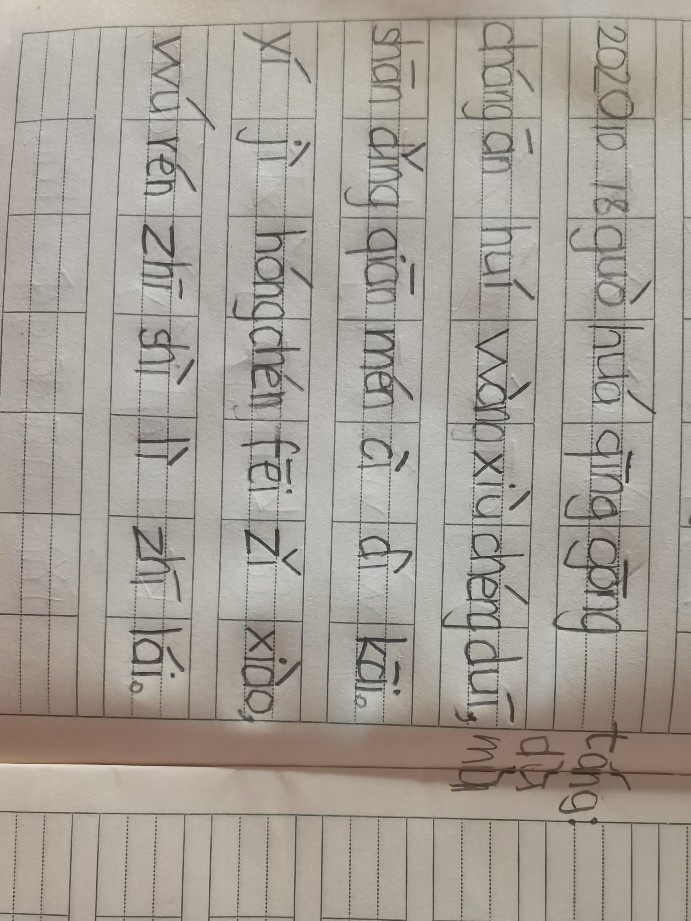 2020 10 18 guò huá qīng gōng táng:
dù mù
cháng ān huí wàng xiù chéng duī,
shān dǐng qiān mén cì dì kāi。
yí jì hóng chén fēi zǐ xiào,
wú rén zhī shì lì zhī lái。